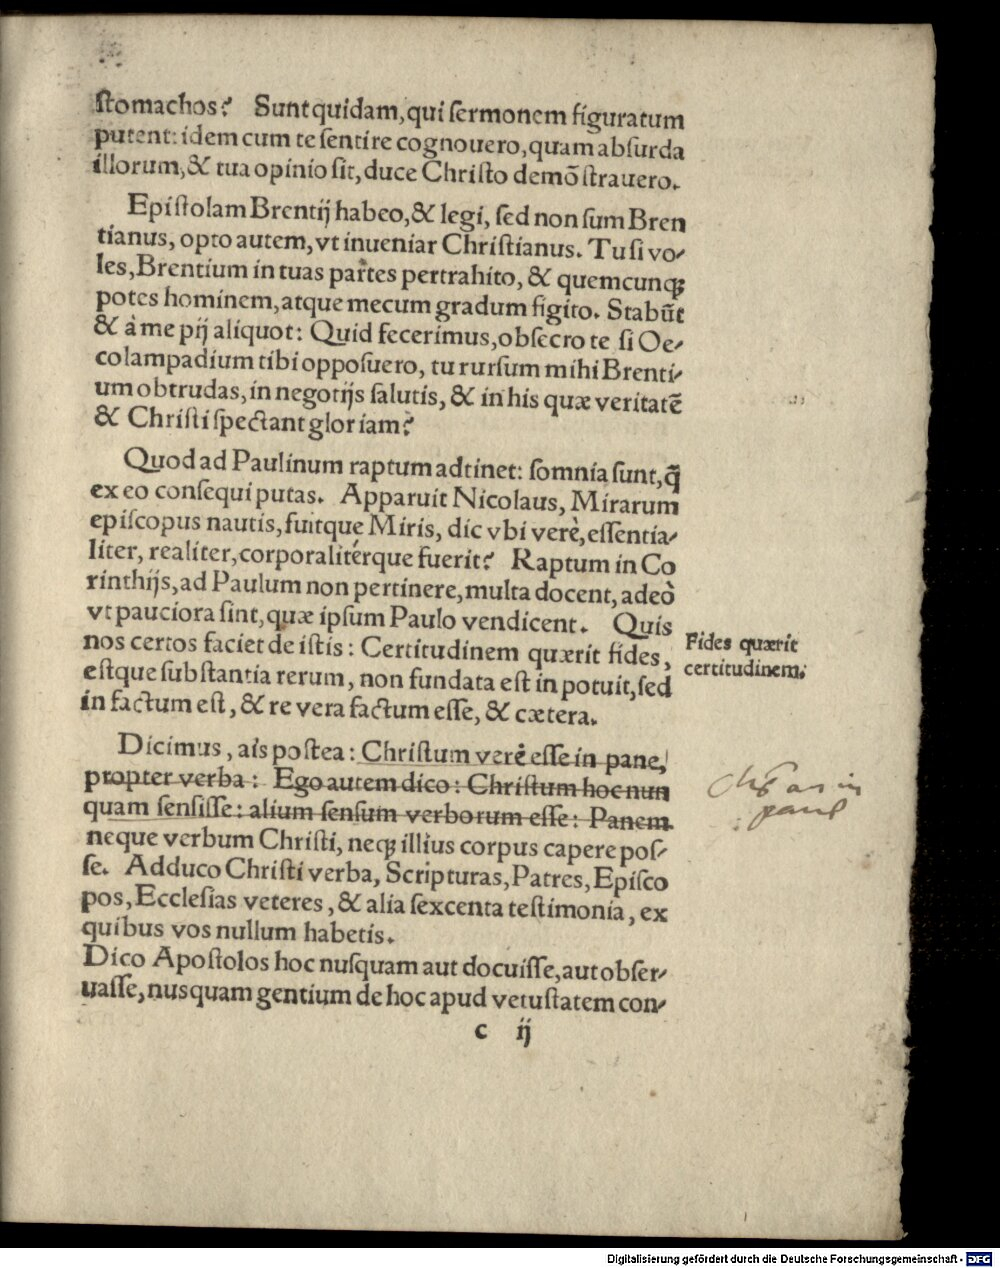 stomachos? Sunt quidam, qui sermonem figuratum
putent: idem cum te sentire cognouero, quam absurda
illorum, & tua opinio sit, duce Christo demõstrauero.
Epistolam Brentij habeo, & legi, sed non sum Bren
tianus, opto autem, vt inueniar Christianus. Tu si vo-
les, Brentium in tuas partes pertrahito, & quemcunqꝫ
potes hominem, atque mecum gradum figito. Stabũt
& à me pij aliquot: Quid fecerimus, obsecro te si Oe-
colampadium tibi opposuero, tu rursum mihi Brenti-
um obtrudas, in negotijs salutis, & in his quæ veritatẽ
& Christi spectant gloriam?
Quod ad Paulinum raptum adtinet: somnia sunt, q̃
ex eo consequi putas. Apparuit Nicolaus, Mirarum
episcopus nautis, fuitque Miris, dic vbi verè, essentia-
liter, realiter, corporalitérque fuerit? Raptum in Co
rinthijs, ad Paulum non pertinere, multa docent, adeò
vt pauciora sint, quæ ipsum Paulo vendicent. Quis
nos certos faciet de istis: Certitudinem quærit fides,
estque substantia rerum, non fundata est in potuit, sed
in factum est, & re vera factum esse, & cætera.
Fides quærit
certitudinem.
Dicimus, ais postea: Christum verè esse in pane,
propter verba: Ego autem dico: Christum hoc nun
quam sensisse: alium sensum verborum esse: Panem
neque verbum Christi, neqꝫ illius corpus capere pos-
se. Adduco Christi verba, Scripturas, Patres, Episco
pos, Ecclesias veteres, & alia sexcenta testimonia, ex
quibus vos nullum habetis.
Dico Apostolos hoc nusquam aut docuisse, aut obser-
uasse, nusquam gentium de hoc apud vetustatem con-
c ij
in
pane
Digitalisierung gefördert durch die Deutsche Forschungsgemeinschaft - DFG